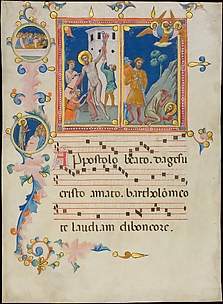 Appostolo beato. da gesu
cristo amato. bartholomeo
te laudiam di bon core.